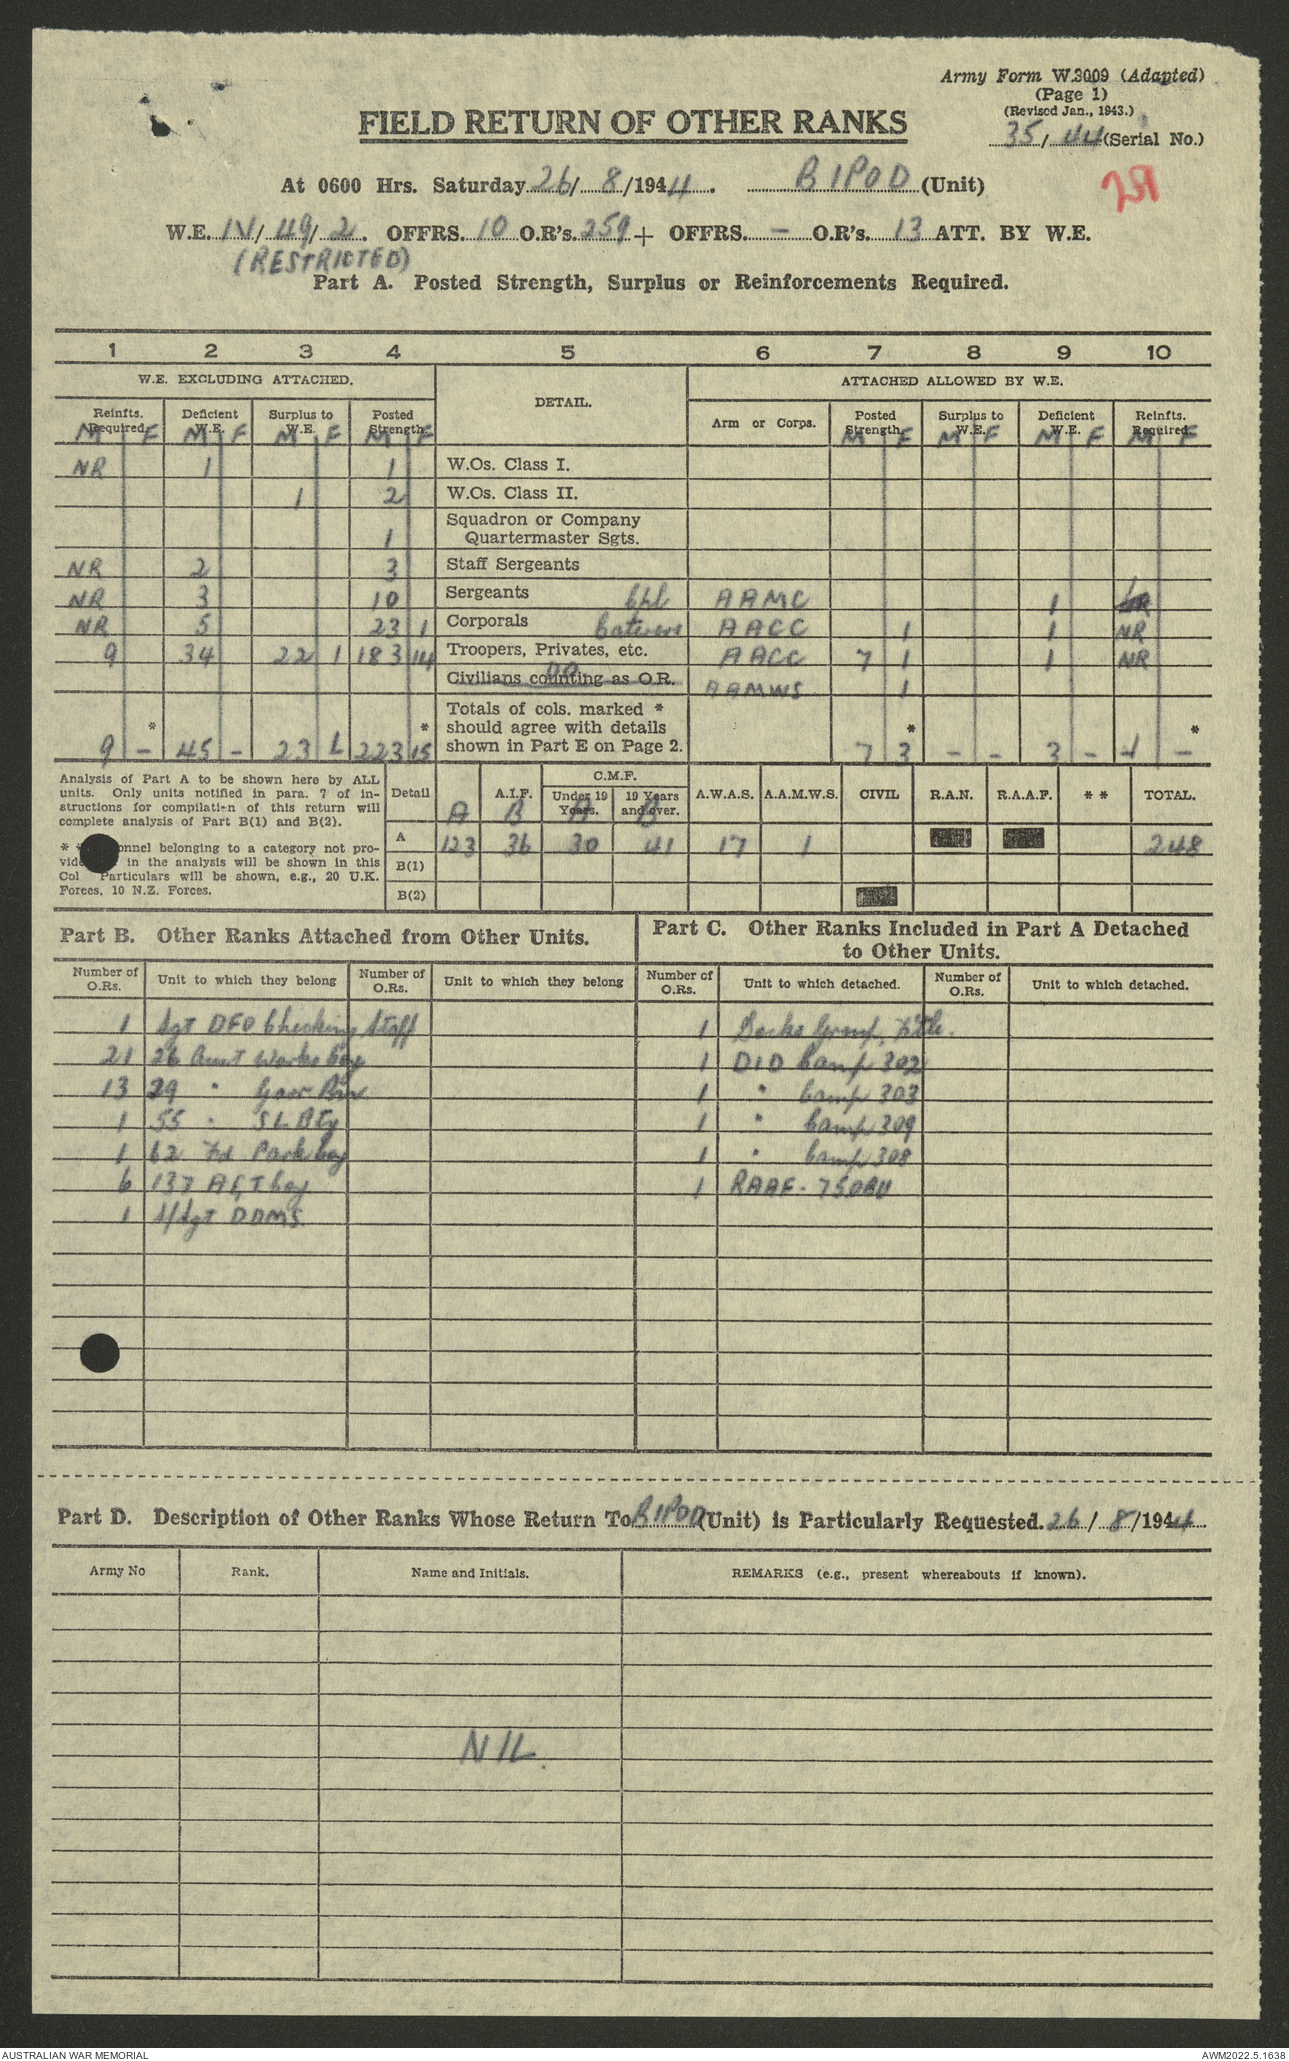 Army Form W.3009 (Adapted)
(Page 1)
(Revised Jan., 1943.)
35/44 (Serial No.)
FIELD RETURN OF OTHER RANKS
At 0600 Hrs. Saturday 26/8/1944. BIPOD (Unit)
W.E. IV/49/2. OFFRS. 10 O.R's. 259 + OFFRS. - O.R's. 13 ATT. BY W.E.
(RESTRICTED)
Part A. Posted Strength, Surplus or Reinforcements Required.
1 2 3 4 5 6 7 8 9 10
W.E. EXCLUDING ATTACHED. DETAIL. ATTACHED ALLOWED BY W.E.
Reinfts. Required Deficient W.E. Surplus to W.E. Posted Strength Arm or Corps. Posted Strength Surplus to W.E. Deficient W.E. Reinfts. Required
M F M F M F M F M F M F M F M F
NR 1 1 W.Os. Class I.
1 2 W.Os. Class II.
1 Squadron or Company
Quartermaster Sgts.
NR 2 3 Staff Sergeants
NR 3 10 Sergeants Cpl AAMC 1
NR 5 23 1 Corporals Caterers AACC 1 1 NR
9 34 22 1 183 14 Troopers, Privates, etc. AACC 7 1 1 NR
Civilians counting as O.R. AAMWS 1
Totals of cols. marked *
should agree with details
shown in Part E on Page 2.
9 - 45 - 23 1 223 15 7 3 - - 3 - 1 -
Analysis of Part A to be shown here by ALL
units. Only units notified in para. 7 of in-
structions for compilation of this return will
complete analysis of Part B(1) and B(2).
onnel belonging to a category not pro-
vide in the analysis will be shown in this
Col Particulars will be shown, e.g., 20 U.K.
Forces, 10 N.Z. Forces.
Detail A.I.F. C.M.F. Under 19 Years. 19 Years and over. A.W.A.S. A.A.M.W.S. CIVIL R.A.N. R.A.A.F. ** TOTAL.
A B A B
A 123 36 30 41 17 1 248
B(1)
B(2)
Part B. Other Ranks Attached from Other Units.
Part C. Other Ranks Included in Part A Detached
to Other Units.
Number of O.Rs. Unit to which they belong Number of O.Rs. Unit to which they belong Number of O.Rs. Unit to which detached. Number of O.Rs. Unit to which detached.
1 Sgt DFO Checking Staff 1 Docks Group,
21 26 Aust Works Coy 1 DID Camp 302
13 29 " 1 " Camp 303
1 55 " SL Bty 1 " Camp 309
1 62 Fd Park Coy 1 " Camp 308
6 137 Coy 1 RAAF -
1 S/Sgt DDMS
Part D. Description of Other Ranks Whose Return To BIPOD (Unit) is Particularly Requested. 26/8/1944
Army No Rank. Name and Initials. REMARKS (e.g., present whereabouts if known).
NIL
AUSTRALIAN WAR MEMORIAL
AWM2022.5.1638